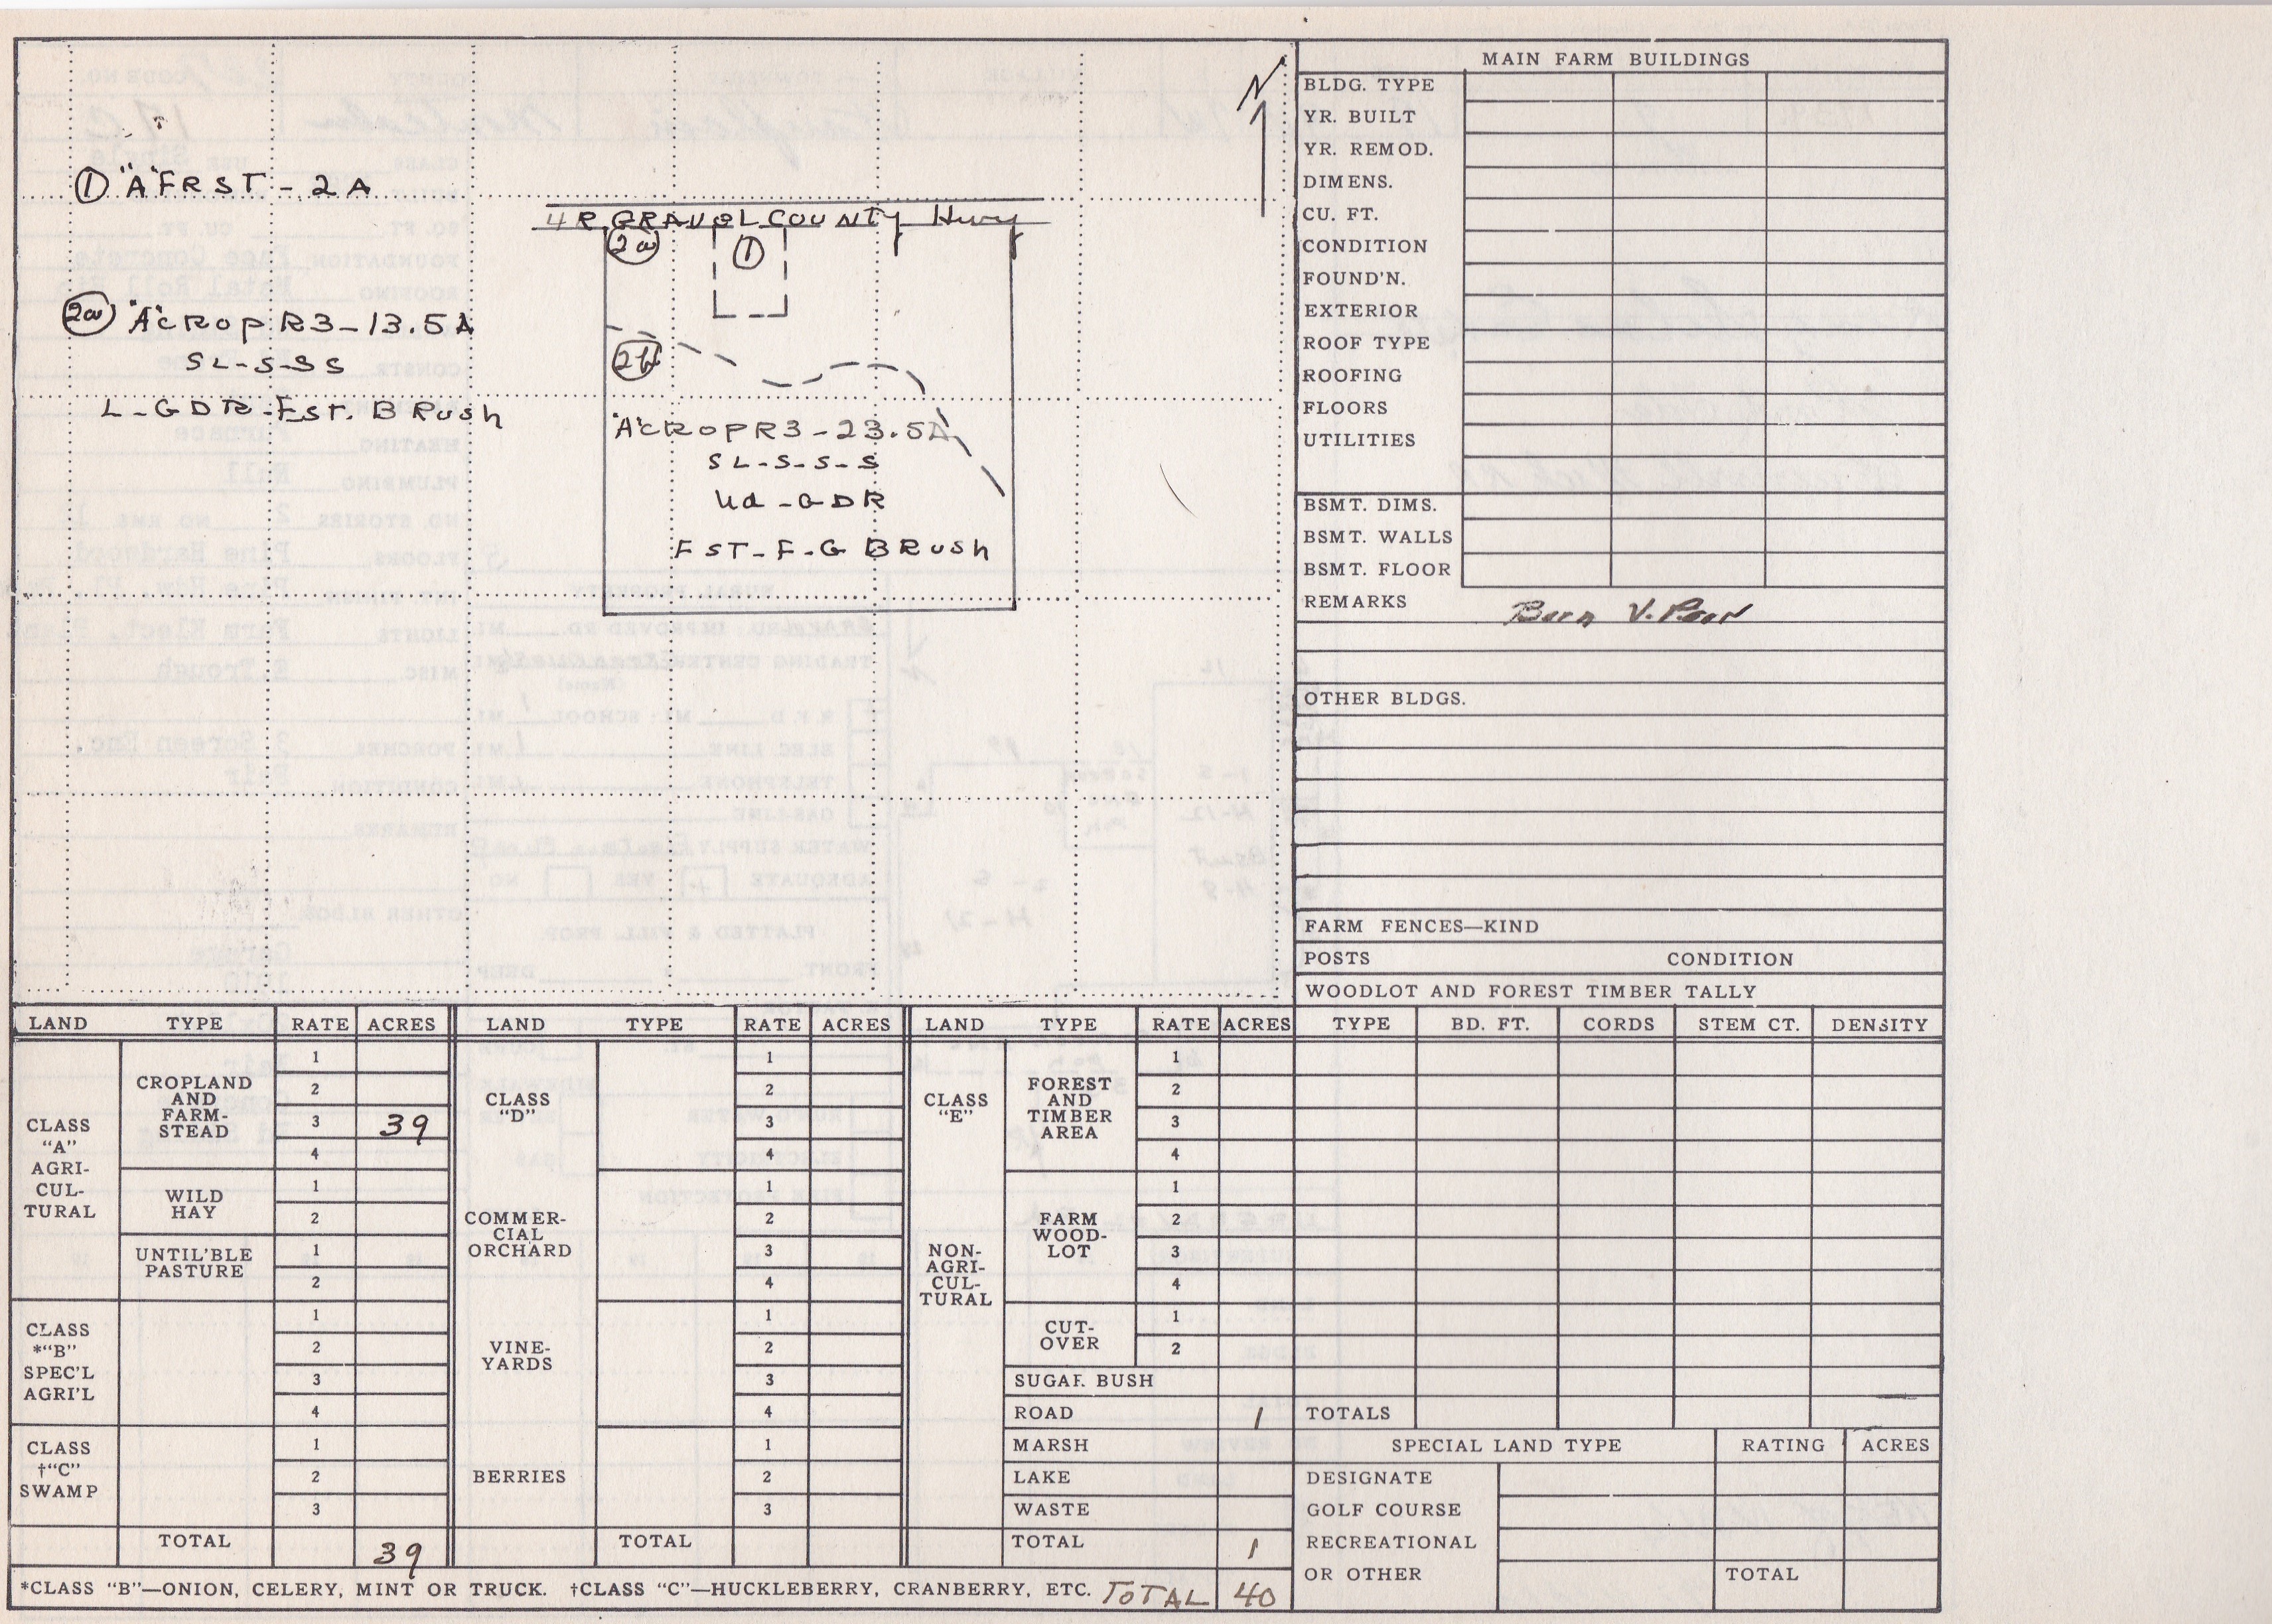 N
① "A" FRST - 2 A
4 R GRAVEL COUNTY Hwy
2a
①
2a "A" CROP R3 - 13.5 A
SL-S-SS
L-GDR-Fst. BRush
2b
"A" CROP R3 - 23.5 A
SL-S-S-S
Ud - GDR
FST-F-G BRush
MAIN FARM BUILDINGS
BLDG. TYPE
YR. BUILT
YR. REMOD.
DIMENS.
CU. FT.
CONDITION
FOUND'N.
EXTERIOR
ROOF TYPE
ROOFING
FLOORS
UTILITIES
BSMT. DIMS.
BSMT. WALLS
BSMT. FLOOR
REMARKS
OTHER BLDGS.
FARM FENCES—KIND
POSTS CONDITION
WOODLOT AND FOREST TIMBER TALLY
TYPE BD. FT. CORDS STEM CT. DENSITY
TOTALS
SPECIAL LAND TYPE RATING ACRES
DESIGNATE
GOLF COURSE
RECREATIONAL
OR OTHER TOTAL
LAND TYPE RATE ACRES
CLASS
"A"
AGRI-
CUL-
TURAL
CROPLAND
AND
FARM-
STEAD
1
2
3 39
4
WILD
HAY
1
2
UNTIL'BLE
PASTURE
1
2
CLASS
*"B"
SPEC'L
AGRI'L
1
2
3
4
CLASS
†"C"
SWAMP
1
2
3
TOTAL 39
LAND TYPE RATE ACRES
CLASS
"D"
1
2
3
4
COMMER-
CIAL
ORCHARD
1
2
3
4
VINE-
YARDS
1
2
3
4
BERRIES
1
2
3
TOTAL
LAND TYPE RATE ACRES
CLASS
"E"
NON-
AGRI-
CUL-
TURAL
FOREST
AND
TIMBER
AREA
1
2
3
4
FARM
WOOD-
LOT
1
2
3
4
CUT-
OVER
1
2
SUGAR BUSH
ROAD 1
MARSH
LAKE
WASTE
TOTAL 1
*CLASS "B"—ONION, CELERY, MINT OR TRUCK. †CLASS "C"—HUCKLEBERRY, CRANBERRY, ETC. TOTAL 40